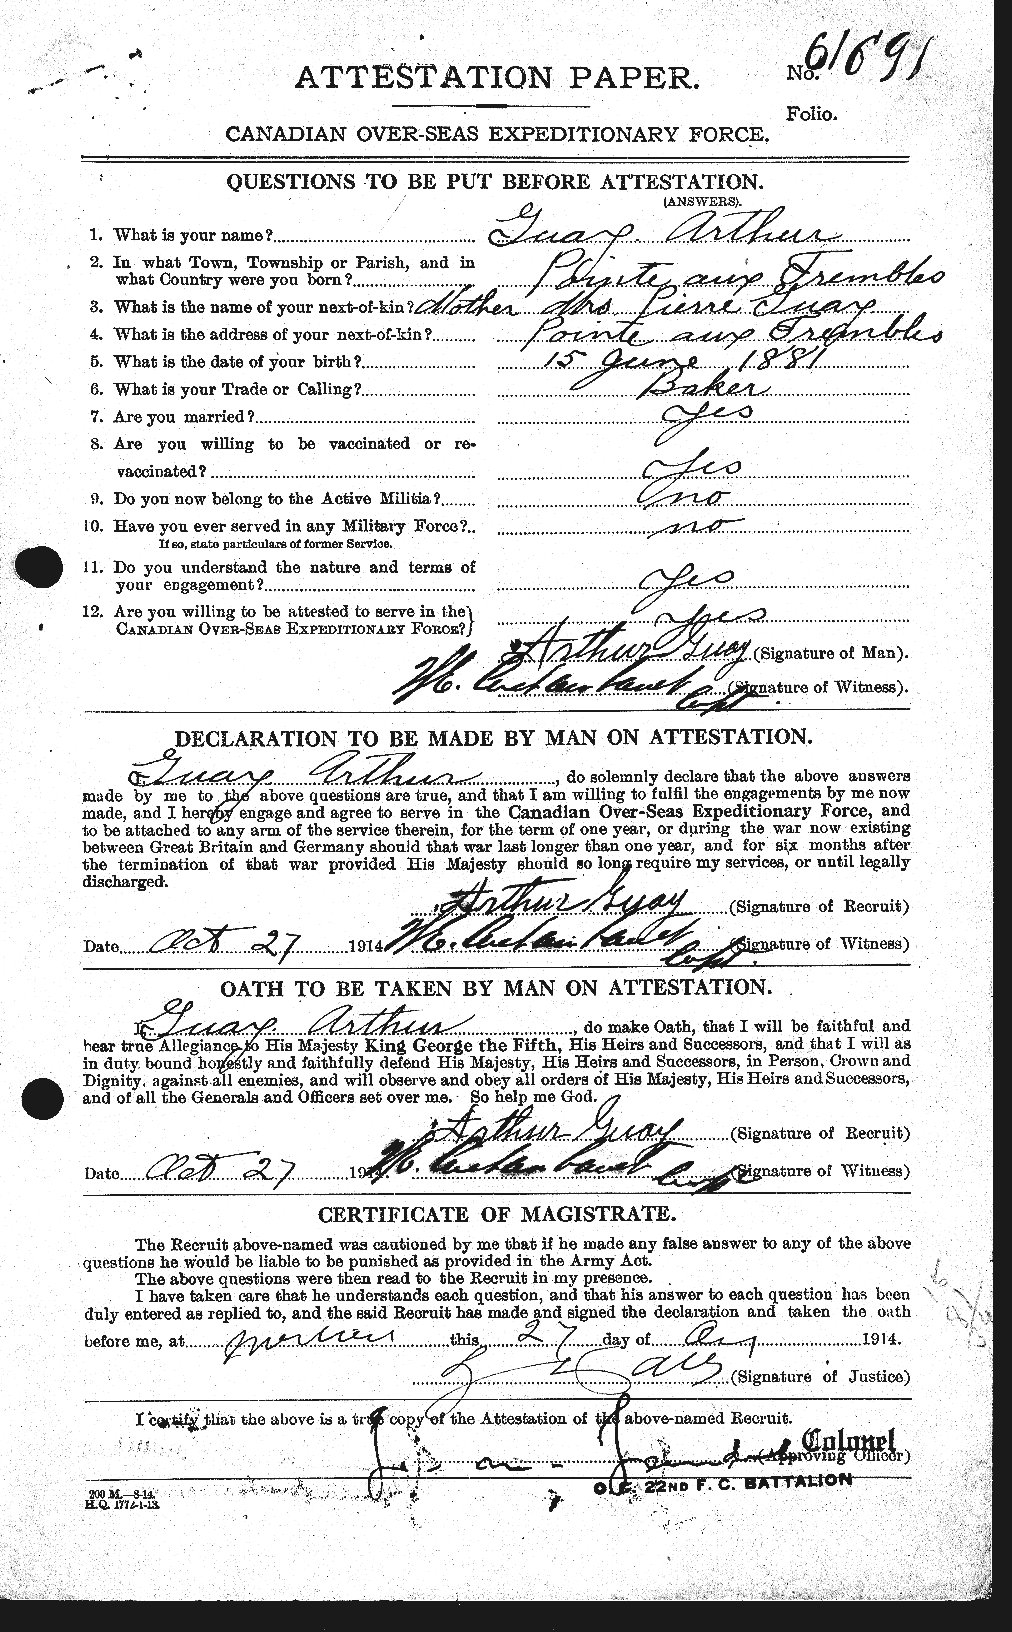 No. 61691
ATTESTATION PAPER.
Folio.
CANADIAN OVER-SEAS EXPEDITIONARY FORCE.
QUESTIONS TO BE PUT BEFORE ATTESTATION.
(ANSWERS).
1. What is your name? Guay Arthur
2. In what Town, Township or Parish, and in
what Country were you born? Pointe aux Trembles
3. What is the name of your next-of-kin? Mother Mrs. Pierre Guay
4. What is the address of your next-of-kin? Pointe aux Trembles
5. What is the date of your birth? 15 June 1881
6. What is your Trade or Calling? Baker
7. Are you married? Yes
8. Are you willing to be vaccinated or re-
vaccinated? Yes
9. Do you now belong to the Active Militia? no
10. Have you ever served in any Military Force? no
If so, state particulars of former Service.
11. Do you understand the nature and terms of
your engagement? Yes
12. Are you willing to be attested to serve in the
CANADIAN OVER-SEAS EXPEDITIONARY FORCE? Yes
Arthur Guay (Signature of Man).
Capt. (Signature of Witness).
DECLARATION TO BE MADE BY MAN ON ATTESTATION.
I, Guay Arthur, do solemnly declare that the above answers
made by me to the above questions are true, and that I am willing to fulfil the engagements by me now
made, and I hereby engage and agree to serve in the Canadian Over-Seas Expeditionary Force, and
to be attached to any arm of the service therein, for the term of one year, or during the war now existing
between Great Britain and Germany should that war last longer than one year, and for six months after
the termination of that war provided His Majesty should so long require my services, or until legally
discharged.
Arthur Guay (Signature of Recruit)
Date Oct 27 1914 Capt. (Signature of Witness)
OATH TO BE TAKEN BY MAN ON ATTESTATION.
I, Guay Arthur, do make Oath, that I will be faithful and
bear true Allegiance to His Majesty King George the Fifth, His Heirs and Successors, and that I will as
in duty bound honestly and faithfully defend His Majesty, His Heirs and Successors, in Person, Crown and
Dignity, against all enemies, and will observe and obey all orders of His Majesty, His Heirs and Successors,
and of all the Generals and Officers set over me. So help me God.
Arthur Guay (Signature of Recruit)
Date Oct 27 1914 Capt (Signature of Witness)
CERTIFICATE OF MAGISTRATE.
The Recruit above-named was cautioned by me that if he made any false answer to any of the above
questions he would be liable to be punished as provided in the Army Act.
The above questions were then read to the Recruit in my presence.
I have taken care that he understands each question, and that his answer to each question has been
duly entered as replied to, and the said Recruit has made and signed the declaration and taken the oath
before me, at this 27 day of 1914.
(Signature of Justice)
I certify that the above is a true copy of the Attestation of the above-named Recruit.
Colonel
(Approving Officer)
O.C. 22ND F. C. BATTALION
200 M.—8-14.
H.Q. 1772-1-13.